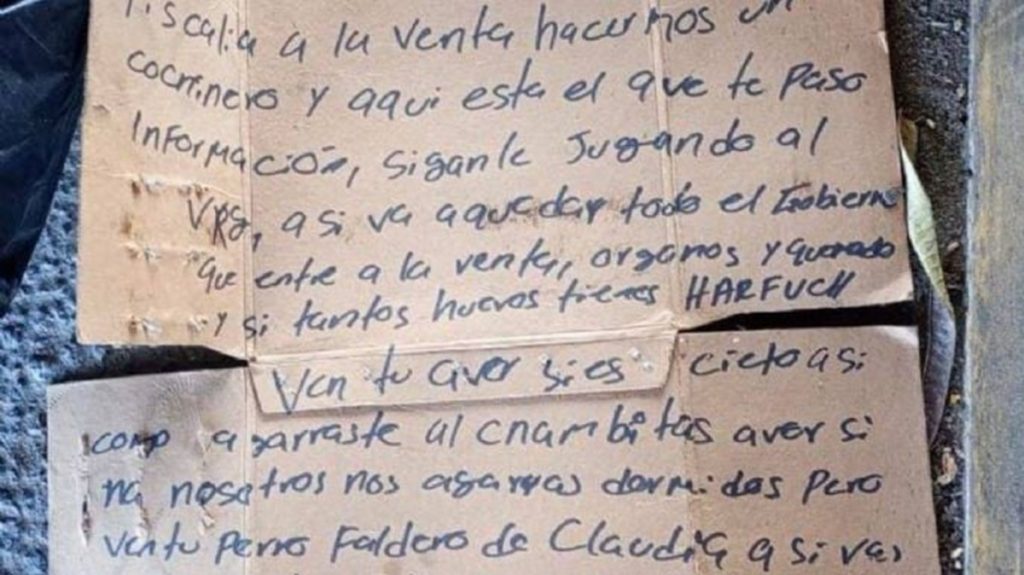 Fiscalia a la venta hacemos un
cochinero y aqui esta el que te paso
Información, siganle Jugando al
VRG, asi va a quedar todo el Gobierno
que entre a la venta, organos y quemado
y si tantos huevos tienes HARFUCH
Ven tu aver si es cieto asi
como agarraste al cnambitas aver si
na nosotros nos agarras dormidos pero
ven tu perro Faldero de Claudia asi vas